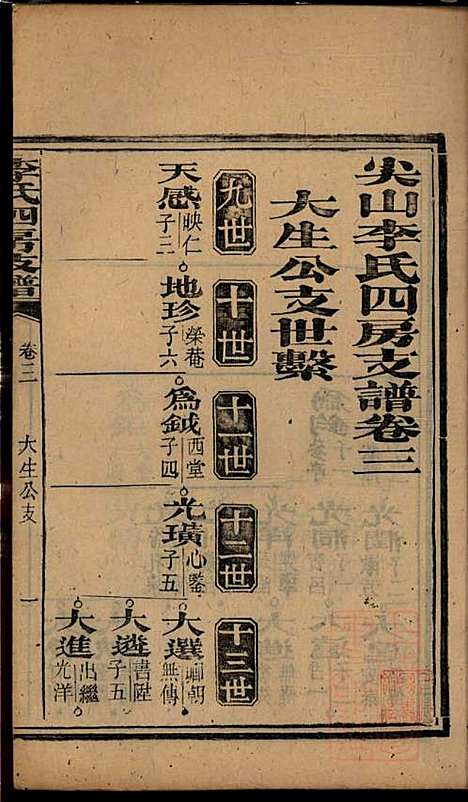 尖山李氏四房支譜卷三
大生公支世繫
九世
十世
十一世
十二世
十三世
天感 映仁 子三
地珍 榮菴 子六
為鉞 西堂 子四
光璜 心鑒 子五
大選 卿朝 無傳
大遴 書陞 子五
大進 出繼 光洋
李氏四房支譜
卷三
大生公支
一